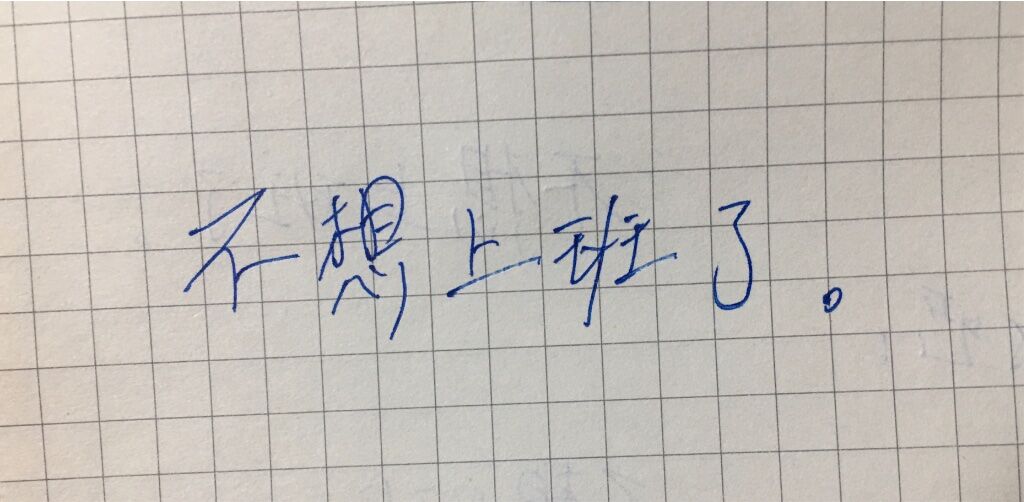 不想上班了。